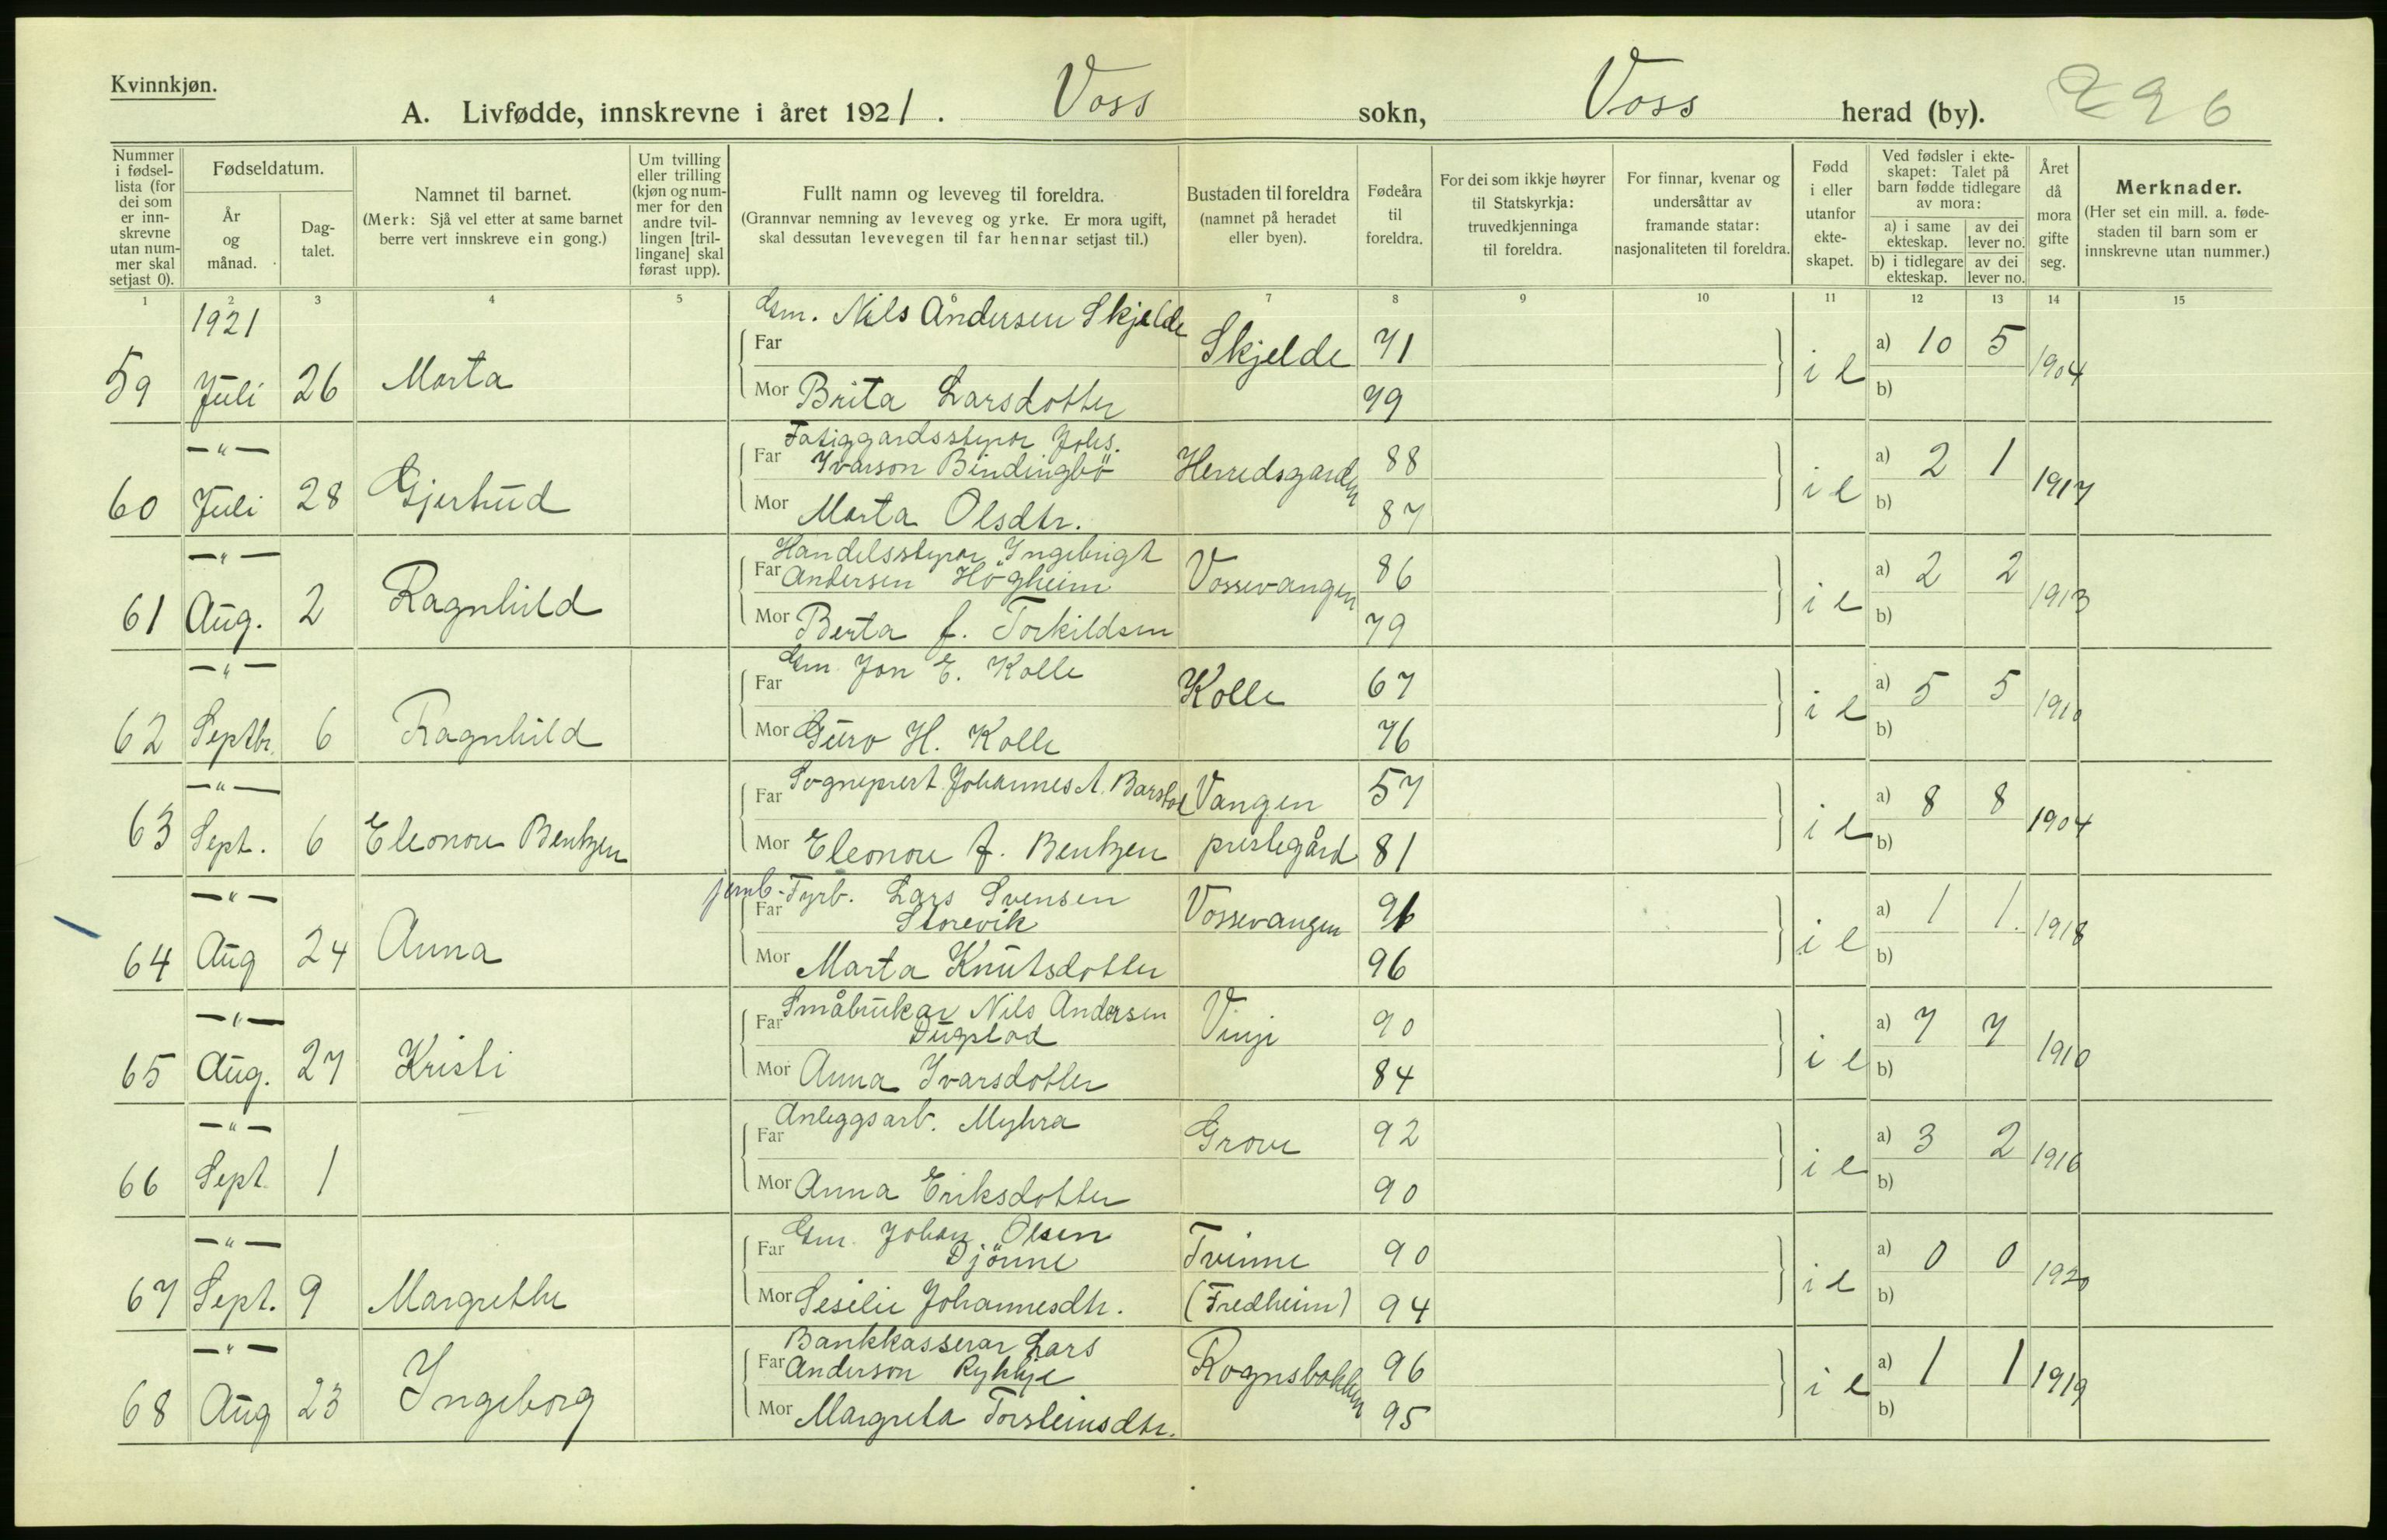 Kvinnkjøn.
A. Livfødde, innskrevne i året 1921. Voss sokn, Voss herad (by). 296
Nummer i fødsel-lista (for dei som er inn-skrevne utan num-mer skal setjast 0).
Fødseldatum.
År og månad.
Dag-talet.
Namnet til barnet.
(Merk: Sjå vel etter at same barnet berre vert innskreve ein gong.)
Um tvilling eller trilling (kjøn og num-mer for den andre tvil-lingen [tril-lingane] skal førast upp).
Fullt namn og leveveg til foreldra.
(Grannvar nemning av leveveg og yrke. Er mora ugift, skal dessutan levevegen til far hennar setjast til.)
Bustaden til foreldra (namnet på heradet eller byen).
Fødeåra til foreldra.
For dei som ikkje høyrer til Statskyrkja: truvedkjenninga til foreldra.
For finnar, kvenar og undersåttar av framande statar: nasjonaliteten til foreldra.
Fødd i eller utanfor ekte-skapet.
Ved fødsler i ekte-skapet: Talet på barn fødde tidlegare av mora:
a) i same ekteskap.
av dei lever no.
b) i tidlegare ekteskap.
av dei lever no.
Året då mora gifte seg.
Merknader.
(Her set ein mill. a. føde-staden til barn som er innskrevne utan nummer.)
1 2 3 4 5 6 7 8 9 10 11 12 13 14 15
1921
Gm. Nils Andersen Skjelde
59 Juli 26 Marta Far Skjelde 71 i e a) 10 5 1904
Mor Brita Larsdotter 79 b)
—"— Fatiggardsstyrar Johs.
60 Juli 28 Gjertrud Far Ivarson Bindingbö Herredsgarden 88 i e a) 2 1 1917
Mor Marta Olsdtr. 87 b)
—"— Handelsstyrar Ingebrigt
61 Aug. 2 Ragnhild Far Andersen Högheim Vossevangen 86 i e a) 2 2 1913
Mor Berta f. Torkildsen 79 b)
—"— Gm Jon E. Kolle
62 Septbr. 6 Ragnhild Far Kolle 67 i e a) 5 5 1910
Mor Guro H. Kolle 76 b)
—"— Sogneprest Johannes A. Barstad
63 Sept. 6 Eleonore Bentzen Far Vangen 57 i e a) 8 8 1904
Mor Eleonore f. Bentzen prestegård 81 b)
—"— jernb- Fyrb. Lars Svensen
64 Aug 24 Anna Far Storevik Vossevangen 96 i e a) 1 1. 1918
Mor Marta Knutsdotter 96 b)
—"— Småbrukar Nils Andersen
65 Aug. 27 Kristi Far Dugstad Vinje 90 i e a) 7 7 1910
Mor Anna Ivarsdotter 84 b)
—"— Anleggsarb. Myhra
66 Sept 1 Far Grove 92 i e a) 3 2 1916
Mor Anna Eriksdotter 90 b)
—"— Gm. Johan Olsen
67 Sept. 9 Margrethe Far Djönne Tvinne 90 i e a) 0 0 1920
Mor Sesilie Johannesdtr. (Fredheim) 94 b)
—"— Bankkasserar Lars
68 Aug 23 Ingeborg Far Anderson Rykkje Rognsbakken 96 i e a) 1 1 1919
Mor Margreta Torsteinsdtr. 95 b)